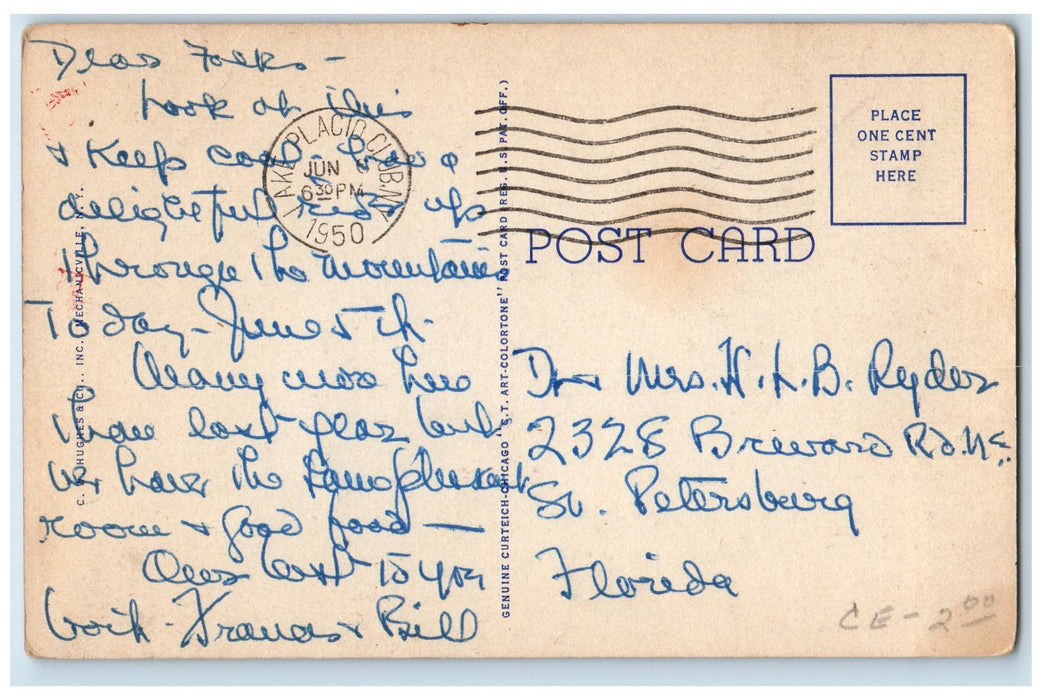 Dear Folks -
Look at this
& Keep cool - have a
delightful ride up
through the mountains
Today - June 5th.
Many more here
than last year but
we have the same pleasant
room & good food —
Our best to you
both - Frances & Bill
LAKE PLACID CLUB, N.Y.
JUN
6 30 PM
1950
PLACE
ONE CENT
STAMP
HERE
POST CARD
Dr & Mrs. H. L. B. Ryder
2328 Brevard Rd. N.E.
St. Petersburg
Florida
C. W. HUGHES & CO., INC., MECHANICVILLE, N. Y.
GENUINE CURTEICH-CHICAGO "C.T. ART-COLORTONE" POST CARD (REG. U.S. PAT. OFF.)
CE - 2 00